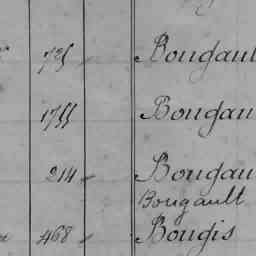 735 Bougaul
1755 Bougau
214 Bougau
Bougault
468 Bougis